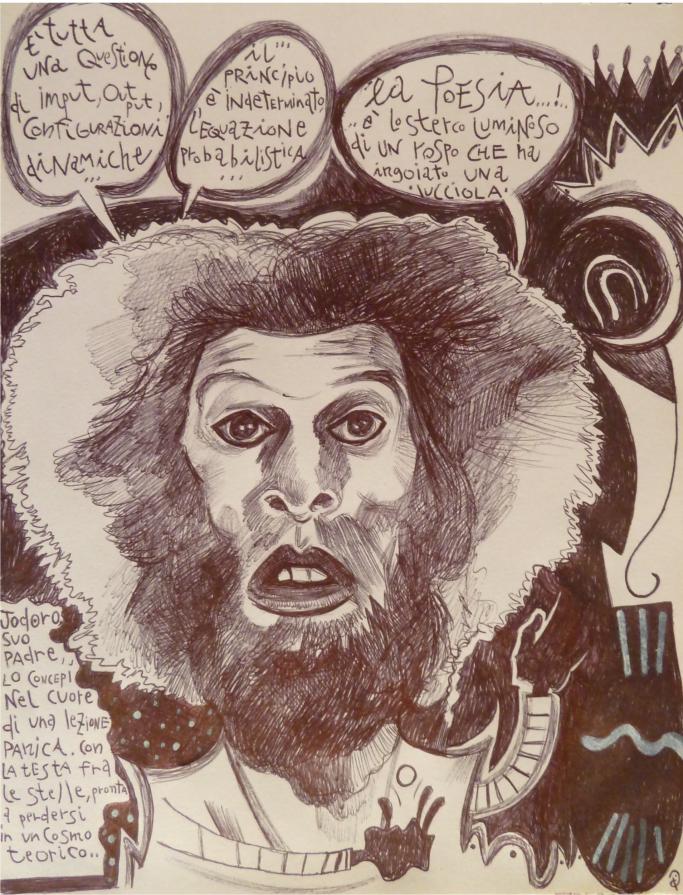 È TUTTA
UNA QUESTIONE
di input, OUT
PUT,
CONFIGURAZIONI
diNAMICHE
...
il'''
PRINCIPIO
è INdETERMINATO
l'EQUAZIONE
PRobAbiliSTICA
...
la POESIA...!..
è lo sterco luminoso
di UN rospo CHE ha
ingoiato UNA
lUCCIOLA.
Jodoro,
SUO
PADRE,,
LO CONCEPI
NEL CUORE
di una lEZIONE
PANICA. CON
LA TESTA fRA
le stelle, pronta
a perdersi
in un Cosmo
teorico..